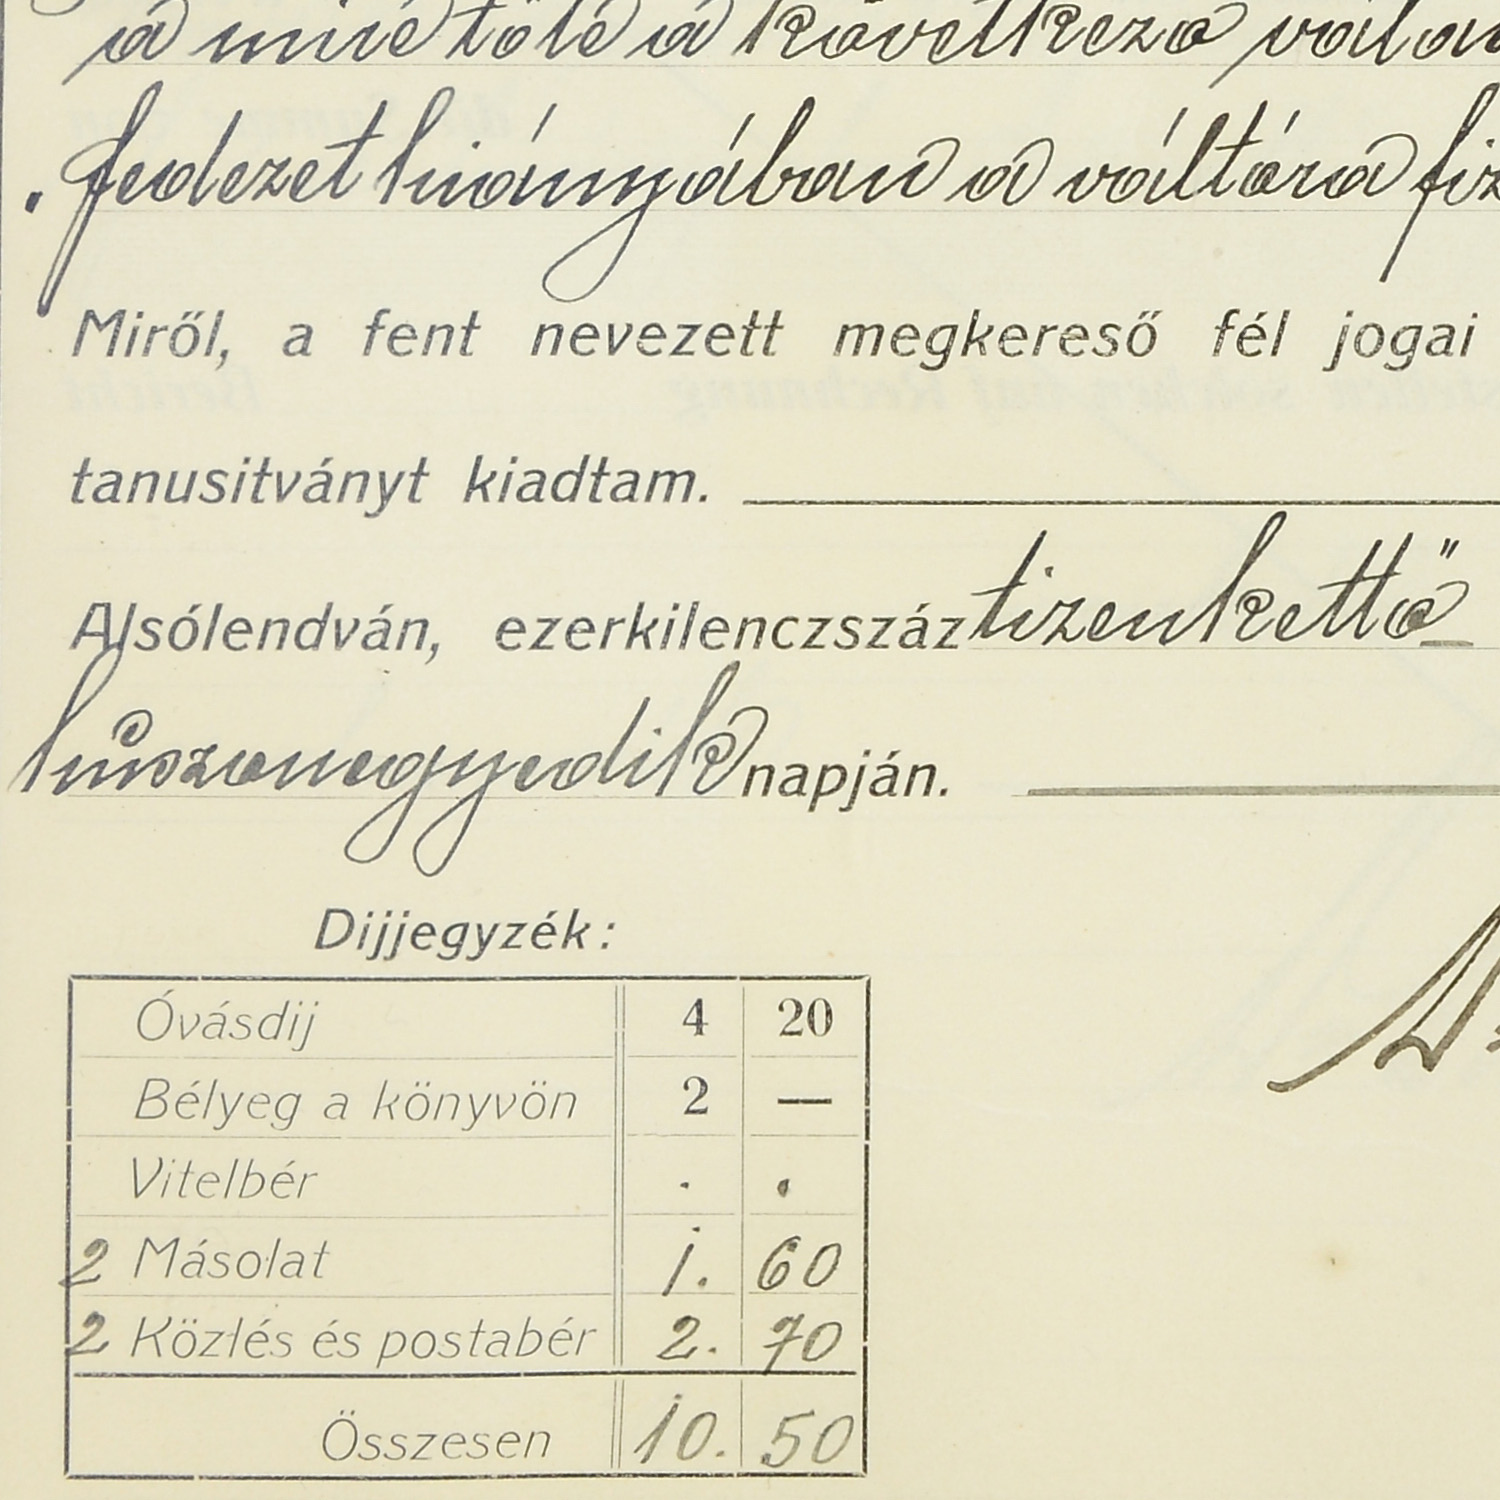 a mire tőle a következő válan
„fedezet hiányában a váltóra fiz
Miről, a fent nevezett megkereső fél jogai
tanusitványt kiadtam.
Alsólendván, ezerkilenczszáz tizenkettő
huszonegyedik napján.
Dijjegyzék:
Óvásdij 4 20
Bélyeg a könyvön 2 —
Vitelbér . .
2 Másolat 1. 60
2 Közlés és postabér 2. 70
Összesen 10. 50